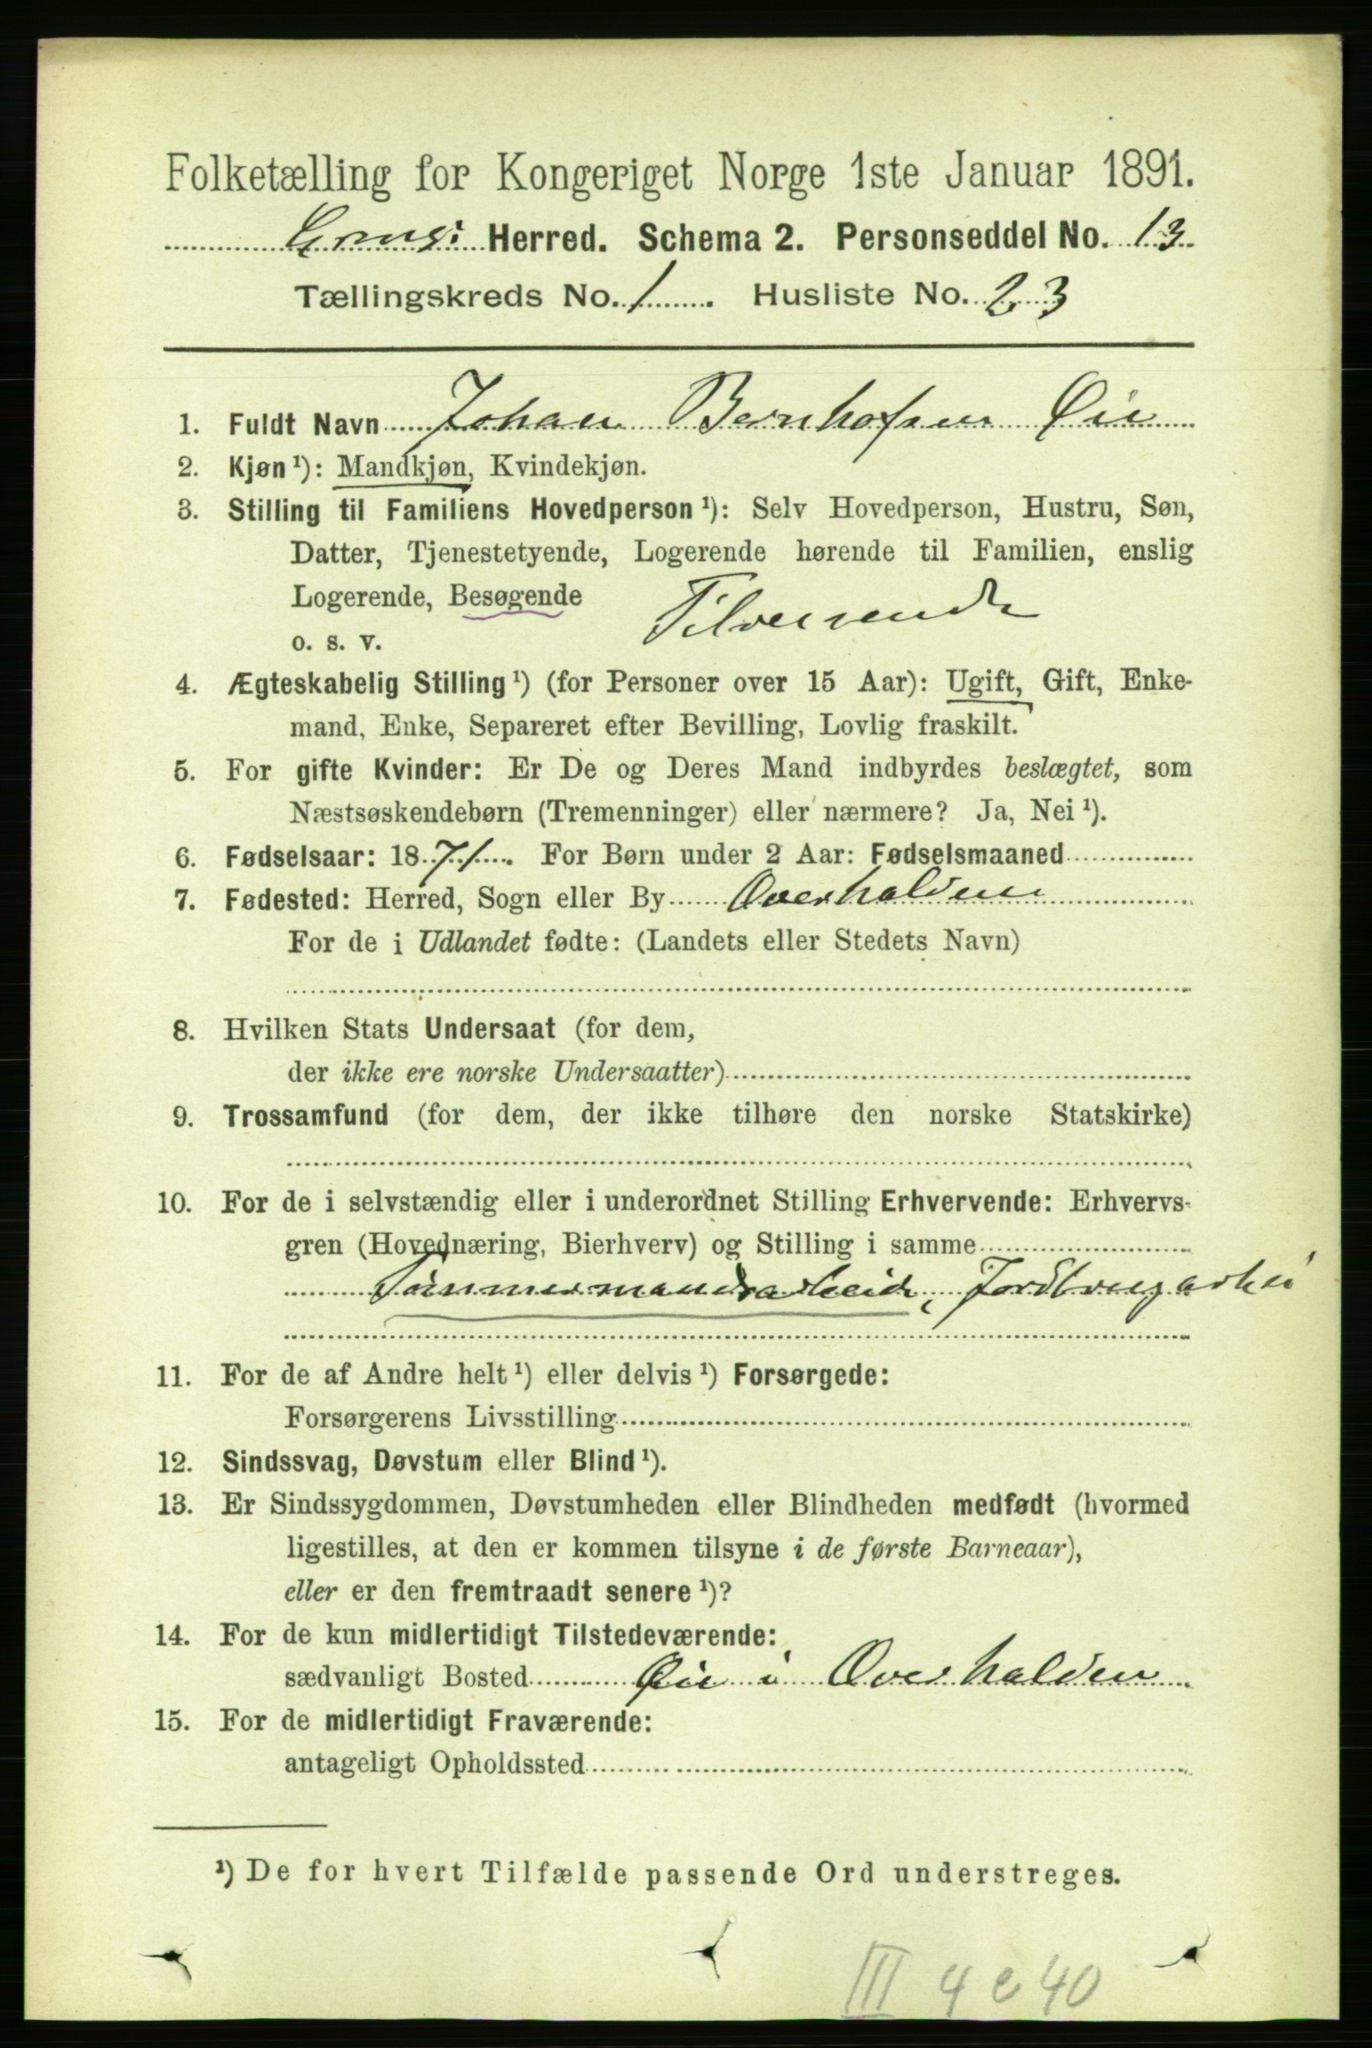 Folketælling for Kongeriget Norge 1ste Januar 1891.
Grong Herred. Schema 2. Personseddel No. 13
Tællingskreds No. 1. Husliste No. 23
1. Fuldt Navn Johan Bernhofsen Øie
2. Kjøn ¹): Mandkjøn, Kvindekjøn.
3. Stilling til Familiens Hovedperson ¹): Selv Hovedperson, Hustru, Søn,
Datter, Tjenestetyende, Logerende hørende til Familien, enslig
Logerende, Besøgende
o. s. v. Tilveisende
4. Ægteskabelig Stilling ¹) (for Personer over 15 Aar): Ugift, Gift, Enke-
mand, Enke, Separeret efter Bevilling, Lovlig fraskilt.
5. For gifte Kvinder: Er De og Deres Mand indbyrdes beslægtet, som
Næstsøskendebørn (Tremenninger) eller nærmere? Ja, Nei ¹).
6. Fødselsaar: 1871. For Børn under 2 Aar: Fødselsmaaned
7. Fødested: Herred, Sogn eller By Overhalden
For de i Udlandet fødte: (Landets eller Stedets Navn)
8. Hvilken Stats Undersaat (for dem,
der ikke ere norske Undersaatter)
9. Trossamfund (for dem, der ikke tilhøre den norske Statskirke)
10. For de i selvstændig eller i underordnet Stilling Erhvervende: Erhvervs-
gren (Hovednæring, Bierhverv) og Stilling i samme
Tømmermandsarbeide, Jordbrugarbei
11. For de af Andre helt ¹) eller delvis ¹) Forsørgede:
Forsørgerens Livsstilling
12. Sindssvag, Døvstum eller Blind ¹).
13. Er Sindssygdommen, Døvstumheden eller Blindheden medfødt (hvormed
ligestilles, at den er kommen tilsyne i de første Barneaar),
eller er den fremtraadt senere ¹)?
14. For de kun midlertidigt Tilstedeværende:
sædvanligt Bosted Øie i Overhalden
15. For de midlertidigt Fraværende:
antageligt Opholdssted
¹) De for hvert Tilfælde passende Ord understreges.
III 4 e 40